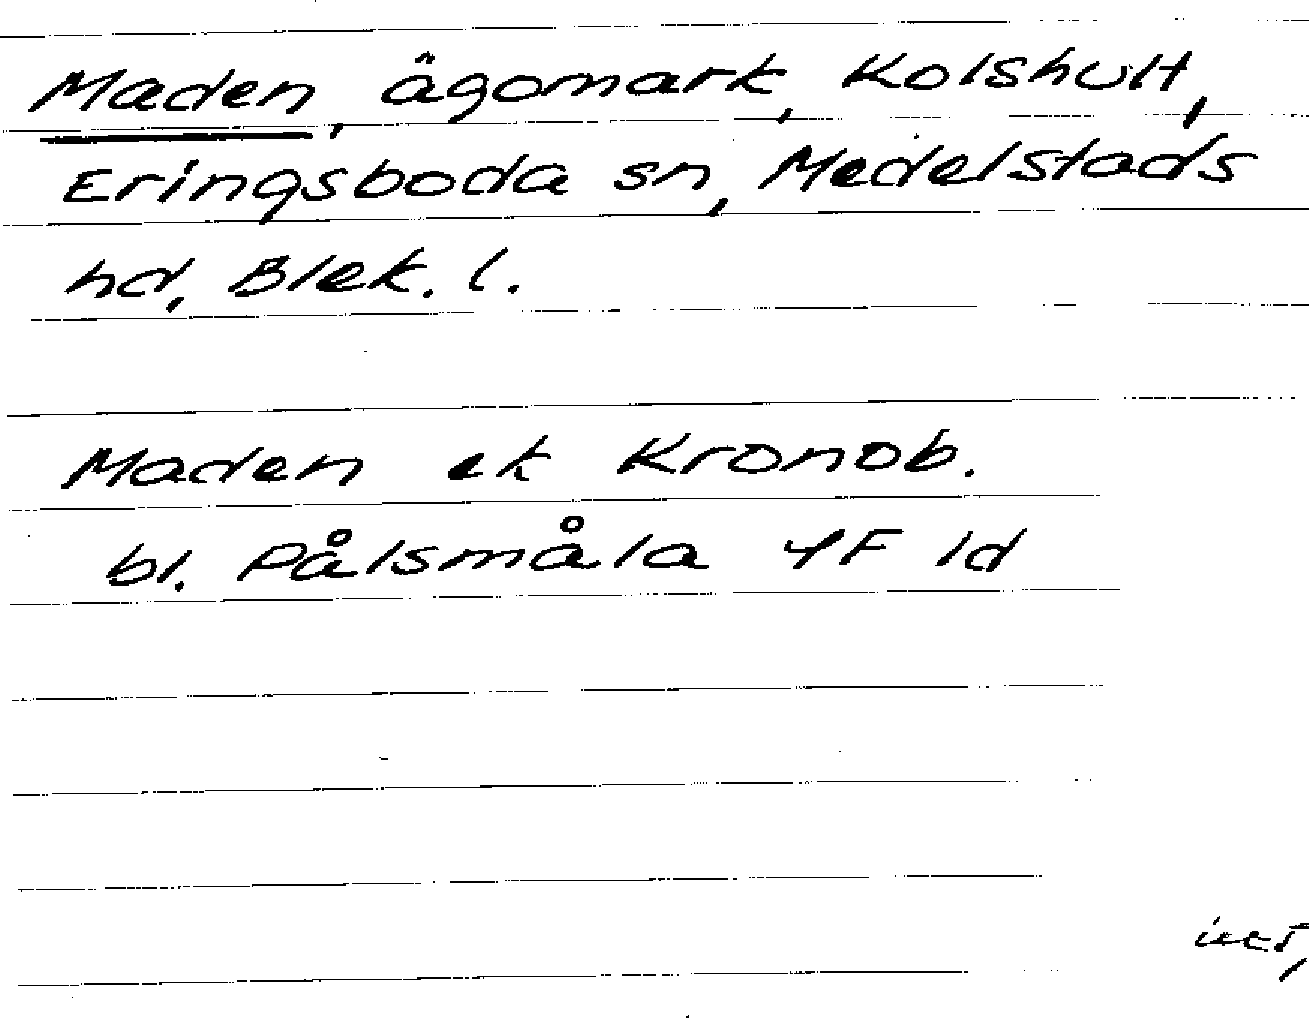 Maden, ägomark, Kolshult,
Eringsboda sn, Medelstads
hd, Blek. l.
Maden ek Kronob.
bl. Pålsmåla 4F 1d